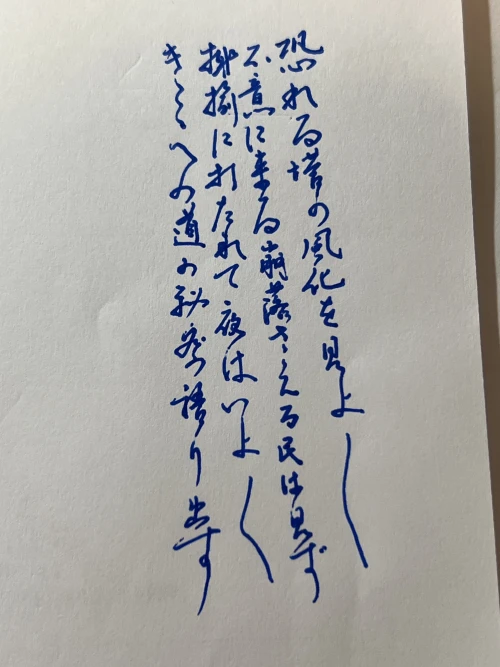 恐れる塔の風化を見よ〱
不意に来る崩落さゝえる民は見ず
揶揄に打たれて夜はいよ〱
への道の秘密語り出す